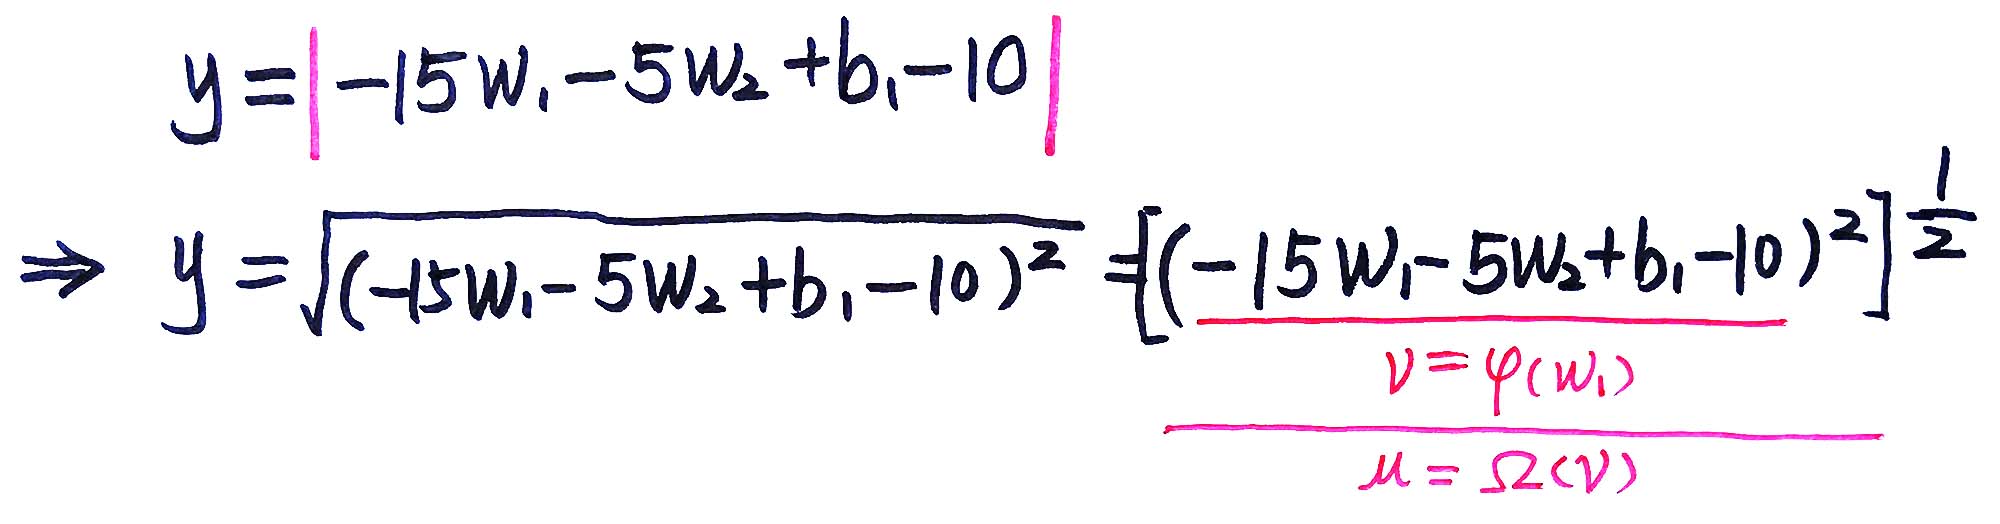 y=|-15w₁-5w₂+b₁-10|
⇒ y=√(-15w₁-5w₂+b₁-10)² =[(-15w₁-5w₂+b₁-10)²]^(1/2)
ν=φ(w₁)
μ=Ω(ν)